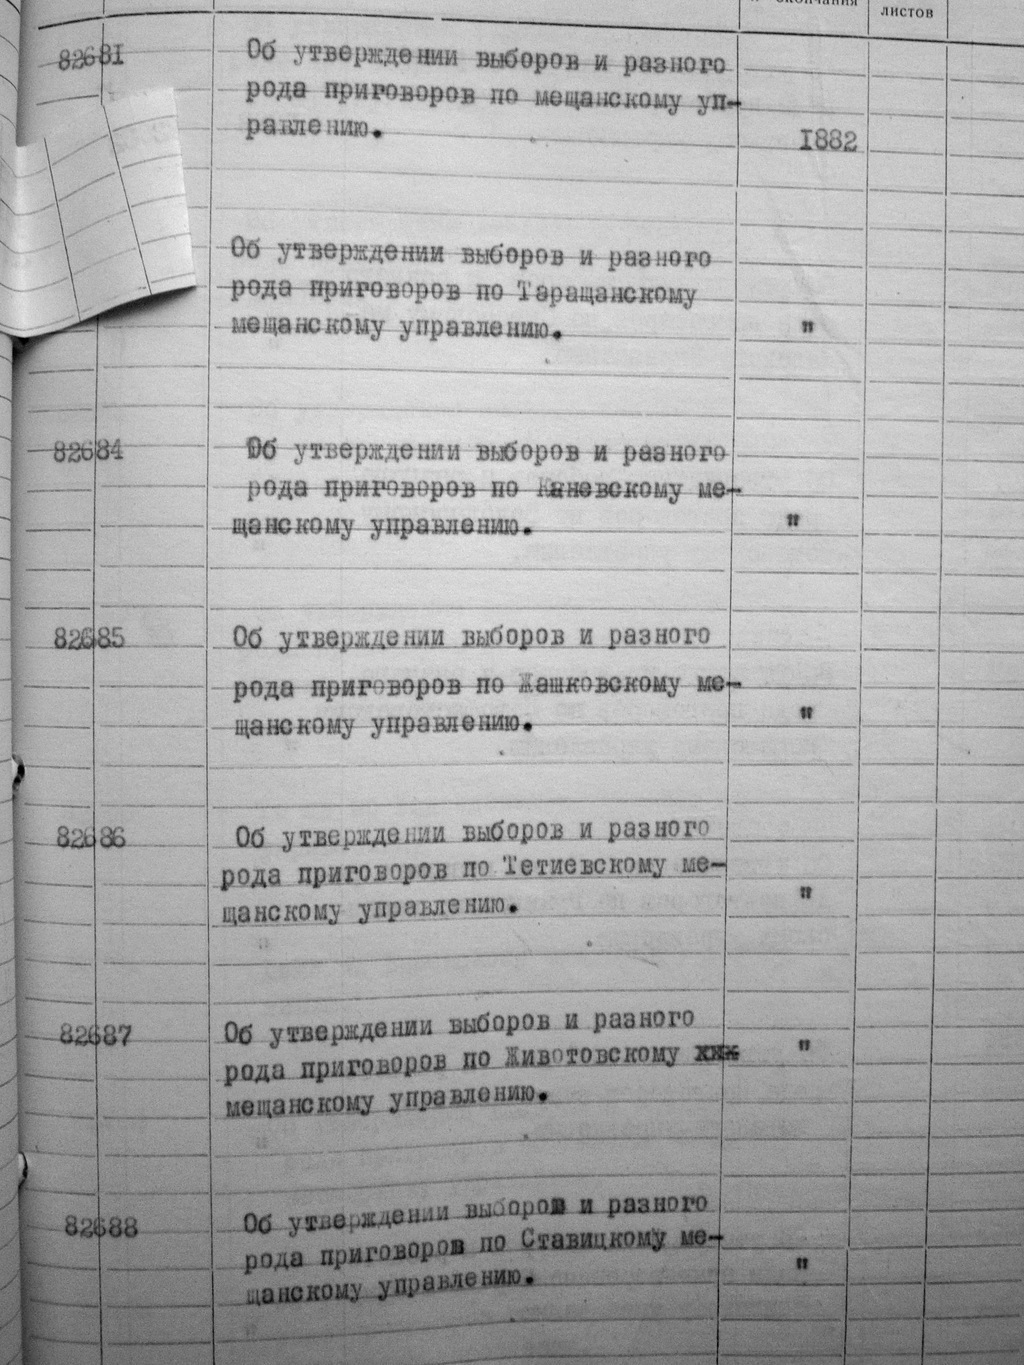 окончания
листов
82681
Об утверждении выборов и разного
рода приговоров по мещанскому уп-
равлению.
1882
Об утверждении выборов и разного
рода приговоров по Таращанскому
мещанскому управлению.
"
82684
Об утверждении выборов и разного
рода приговоров по Каневскому ме-
щанскому управлению.
"
82685
Об утверждении выборов и разного
рода приговоров по Жашковскому ме-
щанскому управлению.
"
82686
Об утверждении выборов и разного
рода приговоров по Тетиевскому ме-
щанскому управлению.
"
82687
Об утверждении выборов и разного
рода приговоров по Животовскому ххх
"
мещанскому управлению.
82688
Об утверждении выборов и разного
рода приговоров по Ставицкому ме-
щанскому управлению.
"